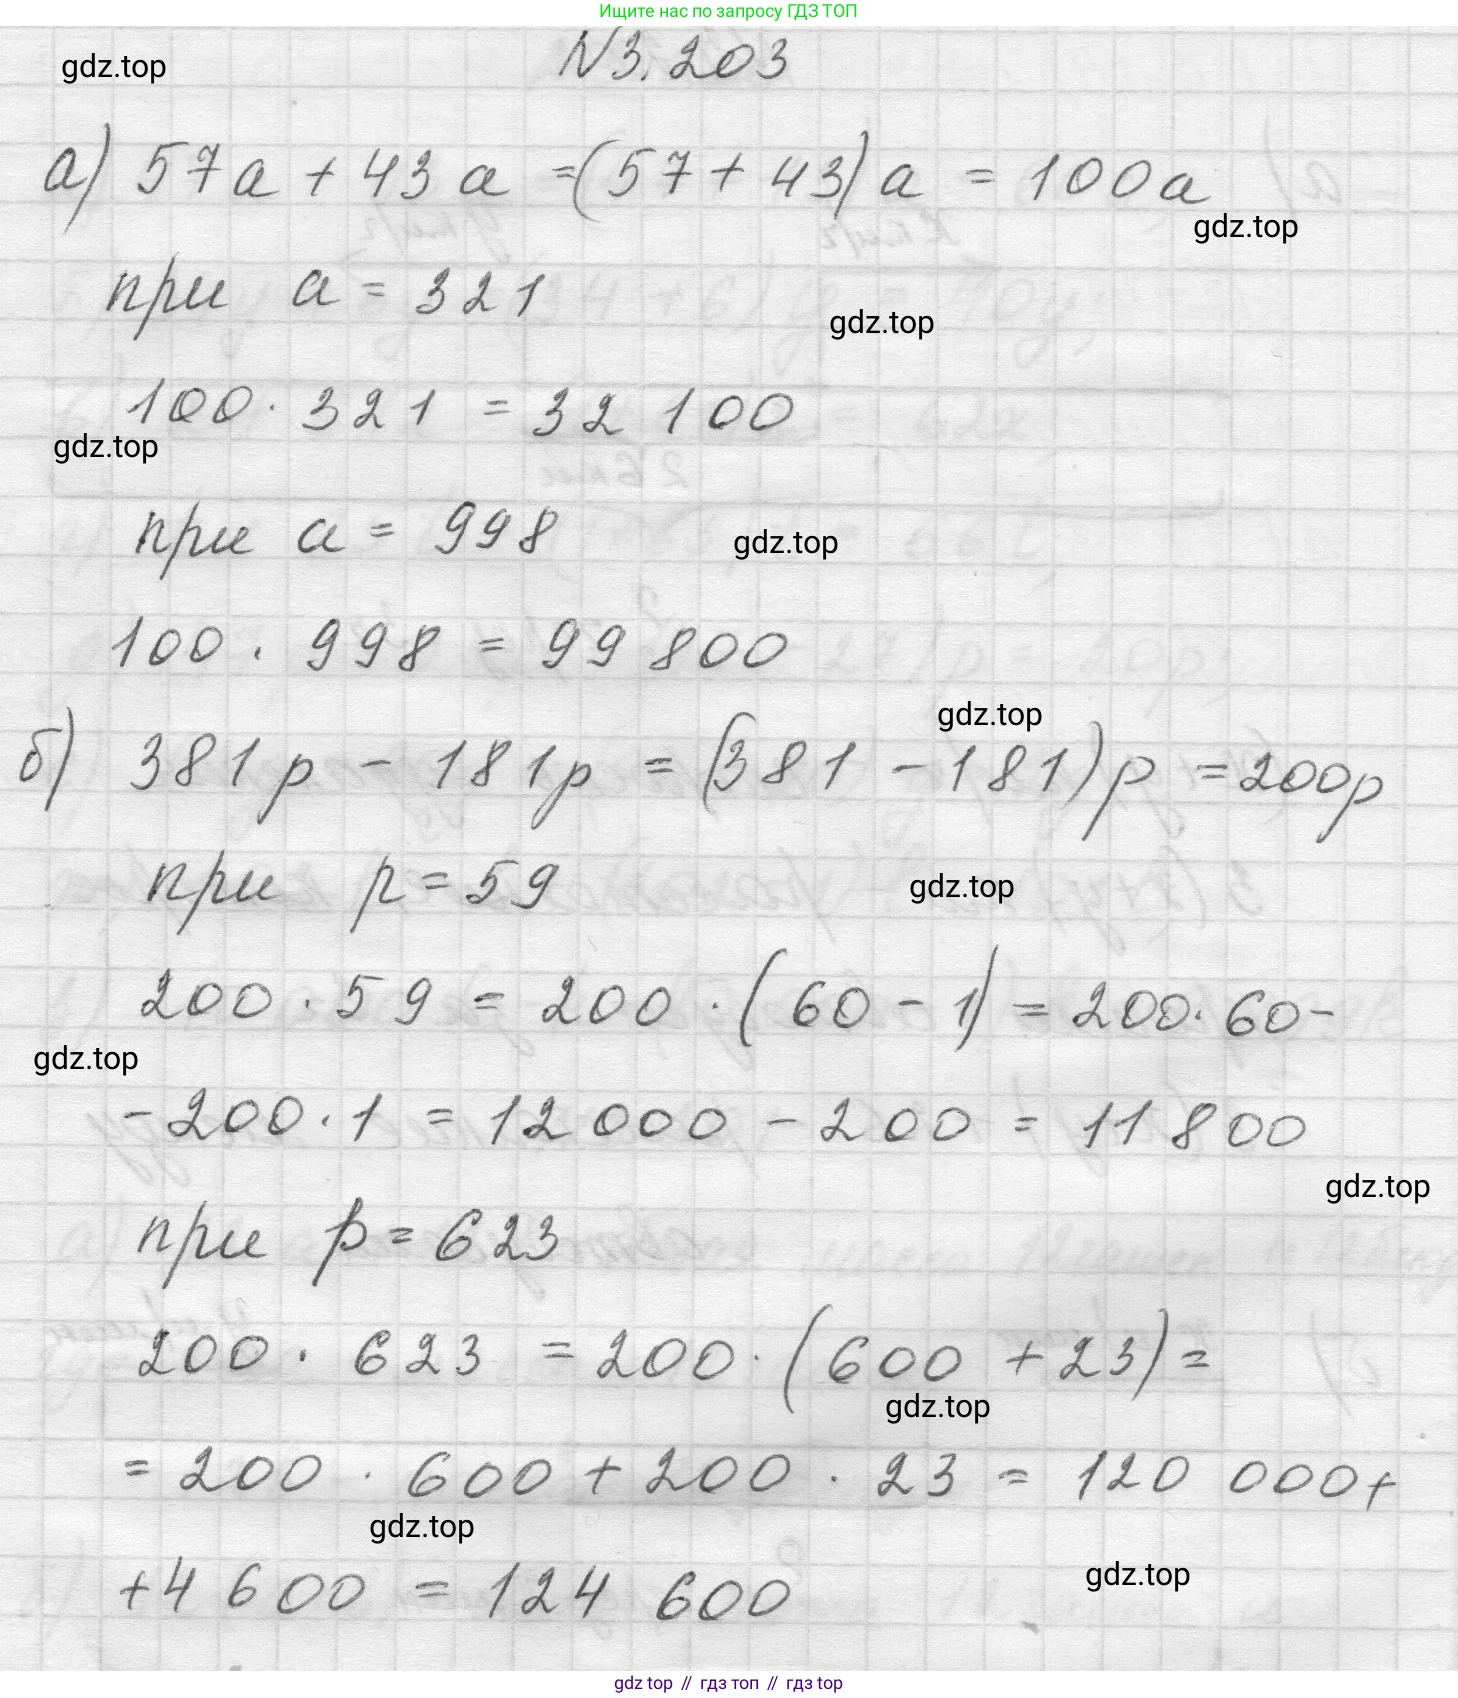 Ищите нас по запросу ГДЗ ТОП
N3.203
gdz.top
а) 57a + 43a =(57 + 43)a = 100a
gdz.top
при a = 321
gdz.top
100 · 321 = 32 100
gdz.top
при a = 998
gdz.top
100 · 998 = 99 800
gdz.top
б) 381p - 181p = (381 - 181)p = 200p
при p = 59
gdz.top
200 · 59 = 200 · (60 - 1) = 200 · 60 -
gdz.top
- 200 · 1 = 12 000 - 200 = 11 800
gdz.top
при p = 623
200 · 623 = 200 · (600 + 23) =
gdz.top
= 200 · 600 + 200 · 23 = 120 000 +
gdz.top
+ 4 600 = 124 600
gdz.top
gdz top // гдз топ // гдз top